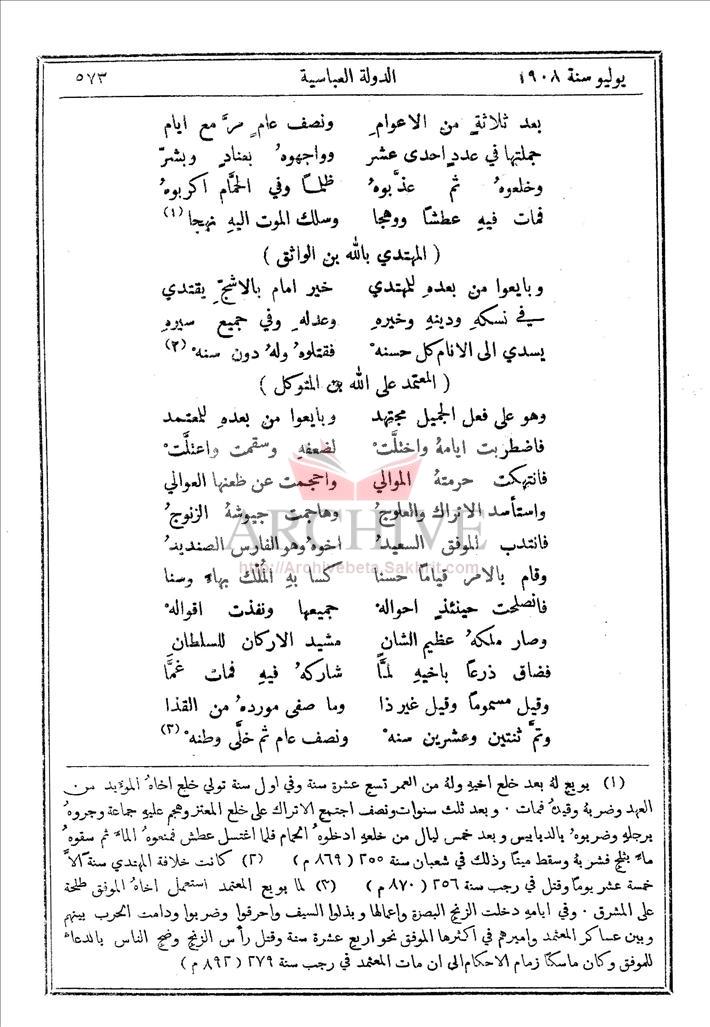 يوليو سنة ١٩٠٨ الدولة العباسية ٥٧٣
بعد ثلاثةٍ من الاعوامِ ونصف عامٍ مرَّ مع ايام
جملتها في عددٍ احدى عشر وواجهوهُ بعنادٍ وبشرّ
وخلعوهُ ثم عذَّبوهُ ظلماً وفي الحمَّام اكربوهُ
فمات فيهِ عطشاً ووهجا وسلك الموت اليهِ نهجا (١)
( المهتدي بالله بن الواثق )
وبايعوا من بعدهِ للمهتدي خير امام بالاشجِّ يقتدي
في نسكهِ ودينهِ وخيرهِ وعدلهِ وفي جميع سيرهِ
يسدي الى الانام كل حسنهْ فقتلوهُ ولهُ دون سنهْ (٢)
( المعتمد على الله بن المتوكل )
وهو على فعل الجميل مجتهد وبايعوا من بعدهِ للمعتمد
فاضطربت ايامهُ واختلَّتْ لضعفهِ وسقمت واعتلَّتْ
فانتهكت حرمتهُ الموالي واحجمت عن ظعنها العوالي
واستأسد الاتراك والعلوجُ وهاجمت جيوشهُ الزنوجُ
فانتدب الموفق السعيدُ اخوهُ وهو الفارس الصنديدُ
وقام بالامر قياماً حسنا كسا بهِ المُلْك بهاءً وسنا
فانصلحت حينئذٍ احوالهْ جميعها ونفذت اقوالهْ
وصار ملكهُ عظيم الشانِ مشيد الاركان للسلطانِ
فضاق ذرعاً باخيهِ لمَّا شاركهُ فيهِ فمات غمَّا
وقيل مسموماً وقيل غير ذا وما صفى موردهُ من القذا
وتمَّ ثنتين وعشرين سنهْ ونصف عام ثم خلَّى وطنهْ (٣)
(١) بويع لهُ بعد خلع اخيهِ ولهُ من العمر تسع عشرة سنة وفي اول سنة تولي خلع اخاهُ المؤيد من
العهد وضربهُ وقيدهُ فمات . وبعد ثلث سنوات ونصف اجتمع الاتراك على خلع المعتز وهجم عليهِ جماعة وجروهُ
برجلهِ وضربوهُ بالدبابيس وبعد خمس ليال من خلعهِ ادخلوهُ الحمام فلما اغتسل عطش فمنعوهُ الماءَ ثم سقوهُ
ماءً بثلج فشربهُ وسقط ميتاً وذلك في شعبان سنة ٢٥٥ ( ٨٦٩ م ) (٢) كانت خلافة المهتدي سنة الاَّ
خمسة عشر يوماً وقتل في رجب سنة ٢٥٦ ( ٨٧٠ م ) (٣) لما بويع المعتمد استعمل اخاهُ الموفق طلحة
على المشرق . وفي ايامهِ دخلت الزنج البصرة واعمالها وبذلوا السيف واحرقوا وضربوا ودامت الحرب بينهم
وبين عساكر المعتمد واميرهم في اكثرها الموفق نحو اربع عشرة سنة وقتل رأس الزنج وضج الناس بالدعاءِ
للموفق وكان ماسكاً زمام الاحكام الى ان مات المعتمد في رجب سنة ٢٧٩ ( ٨٩٢ م )
ARCHIVE
http://Archivebeta.Sakhrit.com